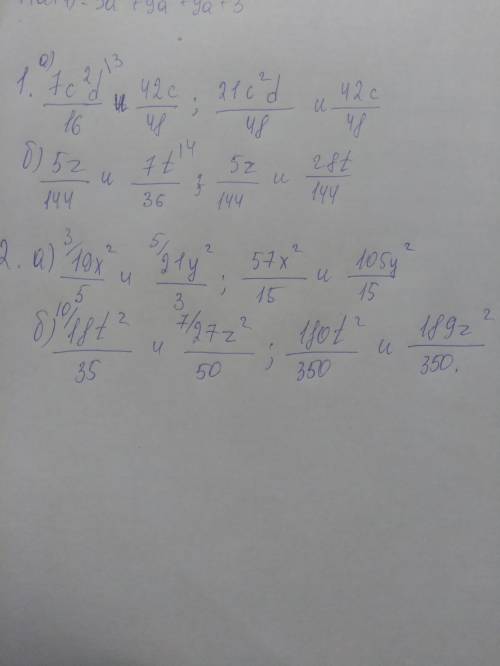 1. а) 7c²d\3/16 и 42c/48 ; 21c²d/48 и 42c/48
б) 5z/144 и 7t\4/36 ; 5z/144 и 28t/144
2. а) 3/19x²/5 и 5/21y²/3 ; 57x²/15 и 105y²/15
б) 10/18t²/35 и 7/27z²/50 ; 180t²/350 и 189z²/350.